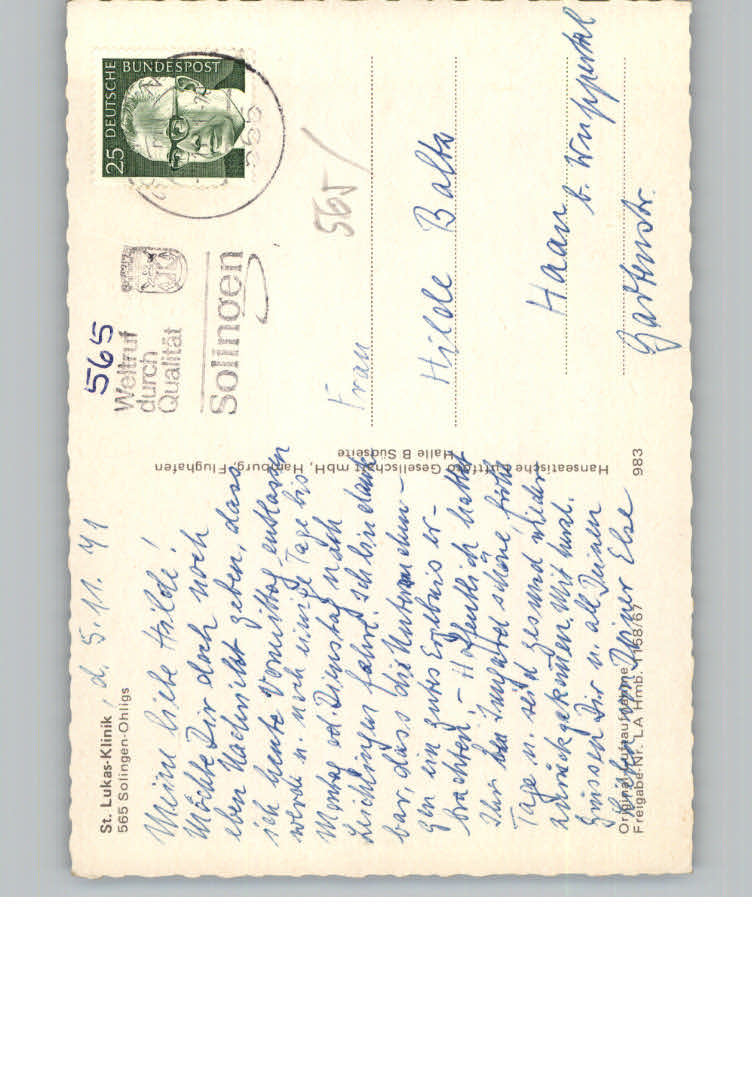 St. Lukas-Klinik, d. 5.11.71
565 Solingen-Ohligs
Meine liebe Hilde!
Möchte Dir doch noch
eben Nachricht geben, dass
ich heute Vormittag entlassen
werde u. noch einige Tage bis
Montag od. Dienstag nach
Leichlingen fahre. Ich bin dank-
bar, dass die Untersuchun-
gen ein gutes Ergebnis er-
brachten. - Hoffentlich hattet
Ihr im schöne
Tage u. seid gesund wieder
zurückgekommen. Mit herzl.
Grüssen Dir u. all Deinen
Lieben von Deiner Else
Original-Luftaufnahme
Freigabe-Nr. LA Hmb. 1158/67
Hanseatische Luftfoto Gesellschaft mbH, Hamburg, Flughafen
Halle B Südseite
983
565
Weltruf
durch
Qualität
Solingen
25 DEUTSCHE BUNDESPOST
565
565
Frau
Hilde Balte
Haan b. Wuppertal
Gartenstr.